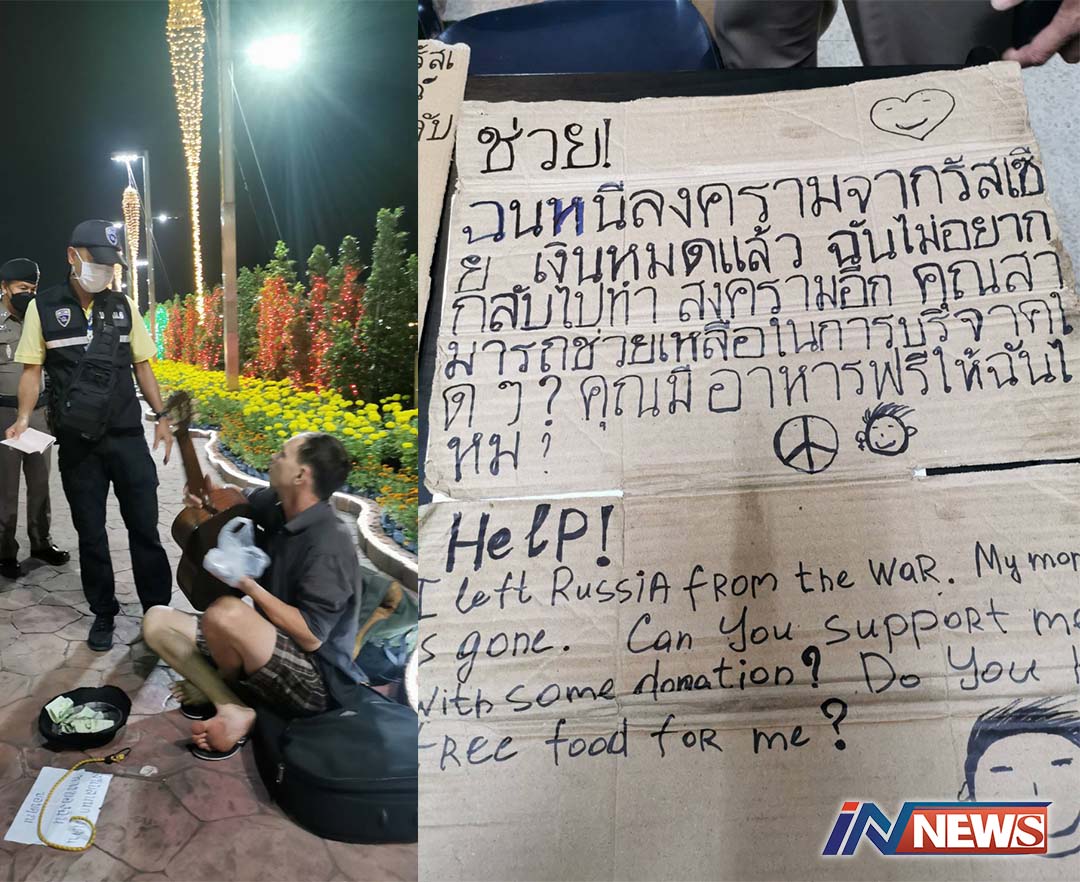 ช่วย!
ฉนหนีสงครามจากรัสเซี
ย เงินหมดแล้ว ฉันไม่อยาก
กลับไปทำ สงครามอีก คุณสา
มารถช่วยเหลือในการบริจาคใ
ด ๆ ? คุณมี อาหารฟรีให้ฉันไ
หม ?
HelP!
I left RussiA fROM the WAR. My mon
s gone. Can you suppoRt me
with some donation? Do you
fRee food foR me?
iN NEWS